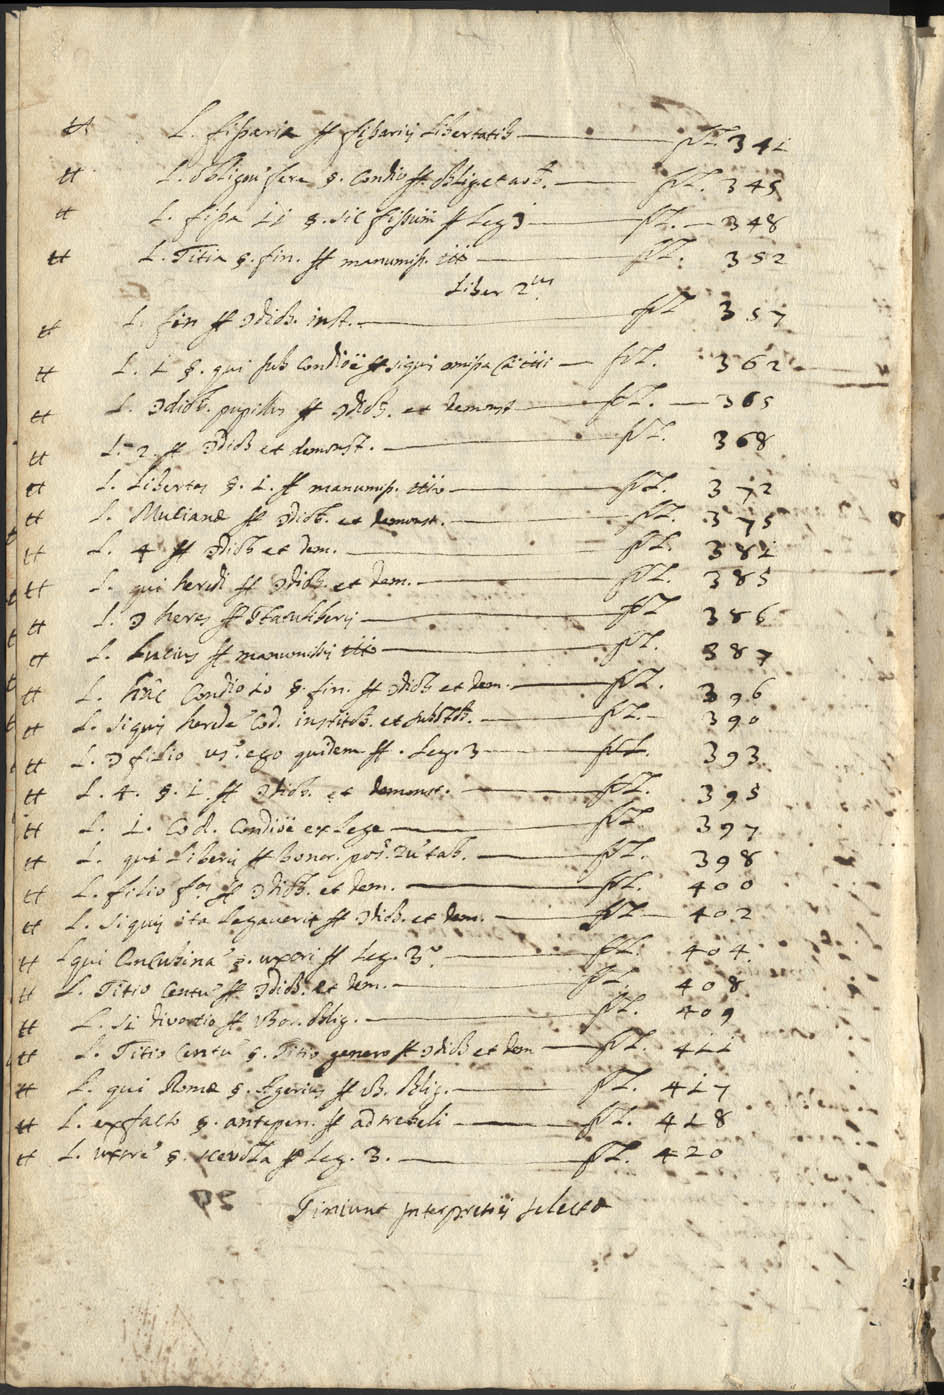 tt L. fissaria ff fissarijs Libertatib — fol. 341
tt L. obligat. fere §. Condio ff. oblig. et act. — fol. 345
tt L. fissa 11 §. sic fissum ff Leg 3 — fol. — 348
tt L. Titia §. fin. ff manumiss. tto — fol. 352
Liber 2us
tt L. fin ff ɔdiob. inst. — fol 357
tt L. 1 §. qui sub Condiõe ff siqui omissa — fol. 362
tt L. ɔdiob. pupillus ff ɔdiob. et demonst — fol. — 365
tt L. 2. ff ɔdiob et demonst. — fol. 368
tt L. Libertas §. 1. ff manumiss. tto — fol. 372
tt L. Mutianæ ff ɔdiob. et demonst. — fol. 375
tt L. 4 ff ɔdiob et dem. — fol. 381
tt L. qui heredi ff ɔdiob. et dem. — fol. 385
tt L. ɔ heres ff Statuliberij — fol 386
tt L. Lucius ff manumissis tto — fol. 387
tt L. hãc Condio to §. fin. ff ɔdiob et dem. — fol. 396
tt L. siquis herede Cod. institob. et substb. — fol. — 390
tt L. ɔ filio us. ego quidem ff. Leg. 3 — fol. 393
tt L. 4. §. 1. ff ɔdiob. et demonst. — fol. 395
tt L. 1. Cod. Condiõe ex Lege — fol. 397
tt L. qui Liberis ff bonor. pos. 2ũ tab. — fol. 398
tt L. filio fas ff ɔdiob. et dem. — fol. 400
tt L. siquis ita Legaverit ff ɔdiob. et dem. — fol — 402
tt L qui Concubina §. uxori ff Leg. 3º. — fol. 404.
tt L. Titio Centu ff ɔdiob. et dem. — fol. 408
tt L. si divortio ff Vbor. oblig. — fol. 409
tt L. Titio Centu §. Titio genero ff ɔdiob et dem — fol. 411
tt L. qui Romæ §. Agerius ff vb. oblig. — fol. 417
tt L. ex facto §. antepen. ff ad trebeli — fol. 418
tt L. uxore §. scevola ff Leg. 3. — fol. 420
Finiunt Interpretiis selecta